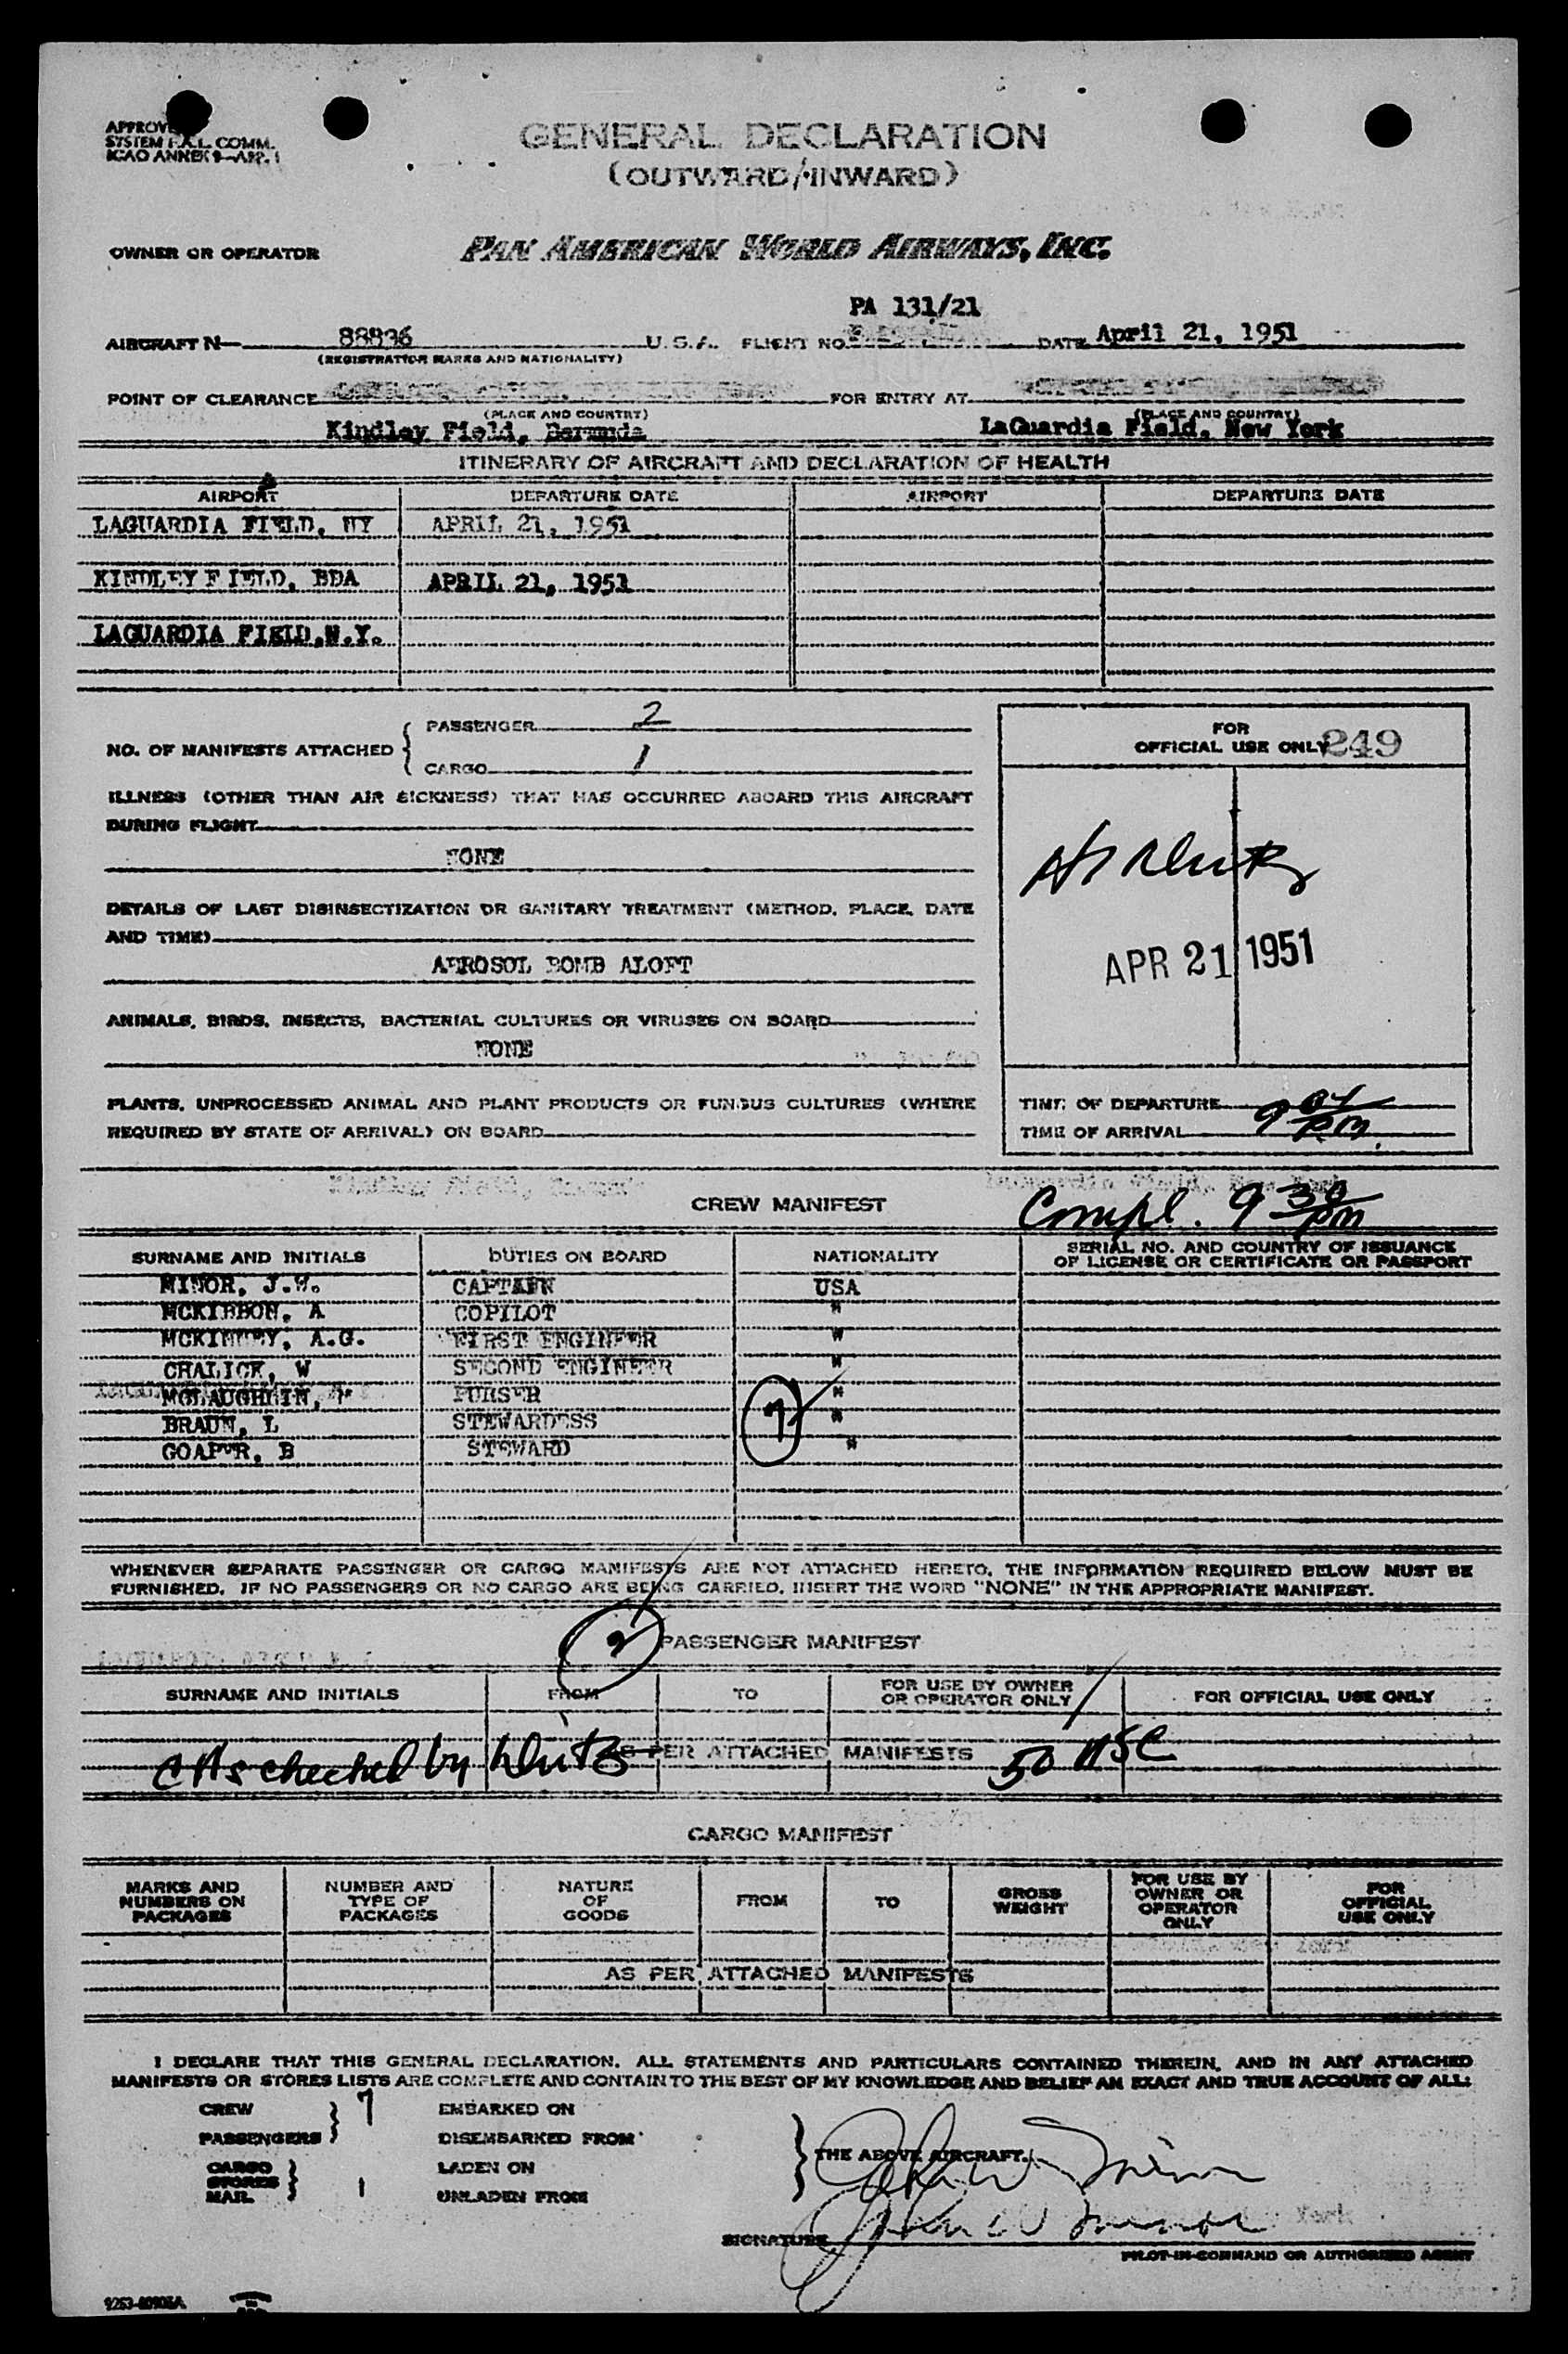 SYSTEM F.A.L. COMM.
ICAO ANNEX 9—APP. 1
GENERAL DECLARATION
(OUTWARD/INWARD)
OWNER OR OPERATOR PAN AMERICAN WORLD AIRWAYS, INC.
PA 131/21
AIRCRAFT N— U.S.A. FLIGHT NO. DATE April 21, 1951
(REGISTRATION MARKS AND NATIONALITY)
POINT OF CLEARANCE FOR ENTRY AT
(PLACE AND COUNTRY) (PLACE AND COUNTRY)
Kindley Field, Bermuda LaGuardia Field, New York
ITINERARY OF AIRCRAFT AND DECLARATION OF HEALTH
AIRPORT DEPARTURE DATE AIRPORT DEPARTURE DATE
LAGUARDIA FIELD, NY APRIL 21, 1951
KINDLEY FIELD, BDA APRIL 21, 1951
LAGUARDIA FIELD,N.Y.
NO. OF MANIFESTS ATTACHED { PASSENGER 2
CARGO 1
FOR
OFFICIAL USE ONLY 249
ILLNESS (OTHER THAN AIR SICKNESS) THAT HAS OCCURRED ABOARD THIS AIRCRAFT
DURING FLIGHT
NONE
DETAILS OF LAST DISINSECTIZATION OR SANITARY TREATMENT (METHOD, PLACE, DATE
AND TIME)
AEROSOL BOMB ALOFT
APR 21 1951
ANIMALS, BIRDS, INSECTS, BACTERIAL CULTURES OR VIRUSES ON BOARD
NONE
PLANTS, UNPROCESSED ANIMAL AND PLANT PRODUCTS OR FUNGUS CULTURES (WHERE
REQUIRED BY STATE OF ARRIVAL) ON BOARD
TIME OF DEPARTURE
TIME OF ARRIVAL 9 04 PM
CREW MANIFEST
Compl. 9 30 PM
SURNAME AND INITIALS DUTIES ON BOARD NATIONALITY SERIAL NO. AND COUNTRY OF ISSUANCE
OF LICENSE OR CERTIFICATE OR PASSPORT
MINOR, J.W. CAPTAIN USA
MCKIBBON, A COPILOT "
MCKINNEY, A.G. FIRST ENGINEER "
CHALICK, W SECOND ENGINEER "
MCLAUGHLIN, PURSER "
BRAUN, L STEWARDESS 7 "
GOAPER, B STEWARD "
WHENEVER SEPARATE PASSENGER OR CARGO MANIFESTS ARE NOT ATTACHED HERETO, THE INFORMATION REQUIRED BELOW MUST BE
FURNISHED. IF NO PASSENGERS OR NO CARGO ARE BEING CARRIED, INSERT THE WORD "NONE" IN THE APPROPRIATE MANIFEST.
2 PASSENGER MANIFEST
SURNAME AND INITIALS FROM TO FOR USE BY OWNER
OR OPERATOR ONLY FOR OFFICIAL USE ONLY
checked by AS PER ATTACHED MANIFESTS 50 USC
CARGO MANIFEST
MARKS AND
NUMBERS ON
PACKAGES
NUMBER AND
TYPE OF
PACKAGES
NATURE
OF
GOODS
FROM
TO
GROSS
WEIGHT
FOR USE BY
OWNER OR
OPERATOR
ONLY
FOR
OFFICIAL
USE ONLY
AS PER ATTACHED MANIFESTS
I DECLARE THAT THIS GENERAL DECLARATION, ALL STATEMENTS AND PARTICULARS CONTAINED THEREIN, AND IN ANY ATTACHED
MANIFESTS OR STORES LISTS ARE COMPLETE AND CONTAIN TO THE BEST OF MY KNOWLEDGE AND BELIEF AN EXACT AND TRUE ACCOUNT OF ALL:
CREW 7 EMBARKED ON
PASSENGERS DISEMBARKED FROM
THE ABOVE AIRCRAFT.
CARGO LADEN ON
STORES 1
MAIL UNLADEN FROM
John W Minor
SIGNATURE John W Minor
PILOT-IN-COMMAND OR AUTHORIZED AGENT